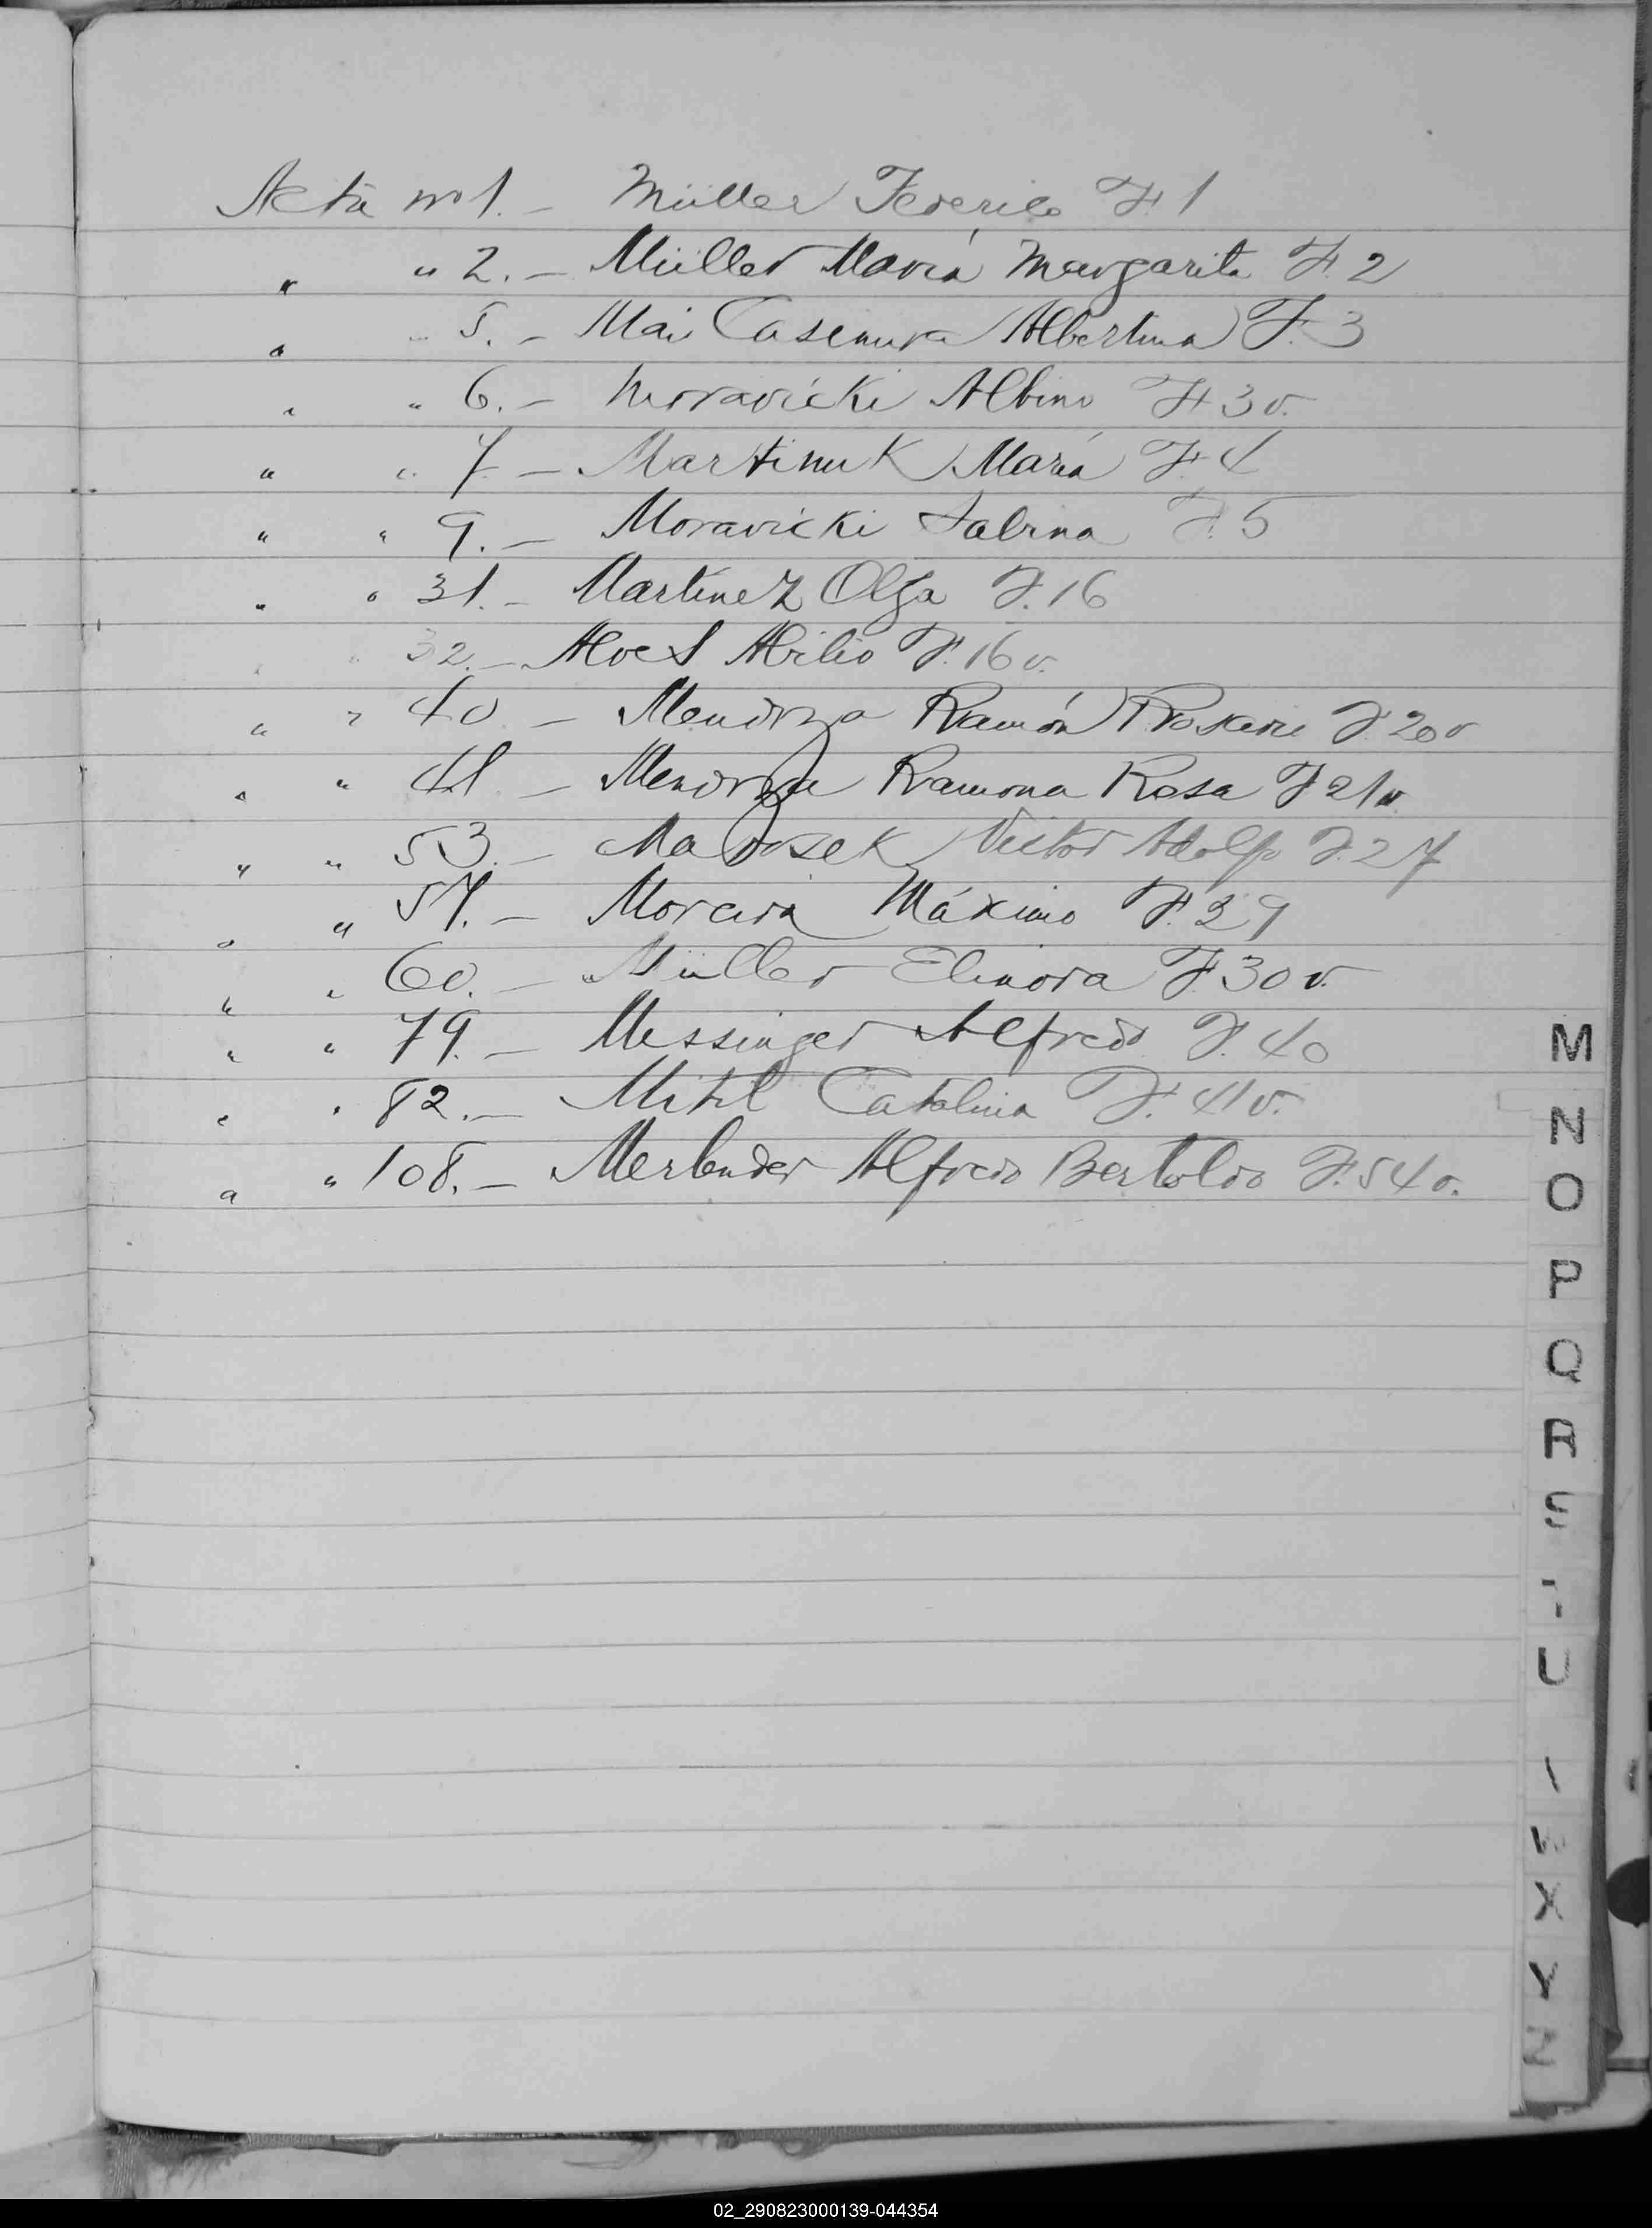 Acta nº 1. - Müller Federico F. 1
" " 2. - Müller María Margarita F. 2
" " 5. - Mai Casemira Albertina F. 3
" " 6. - Moravicki Albino F. 3 v.
" " 7. - Martinuk María F. 4
" " 9. - Moravicki Sabina F. 5
" " 31. - Martinez Olga F. 16
" " 32. - Alves Abilio F. 16 v.
" " 40 - Mendoza Ramón F. 20 v
" " 41 - Mendoza Ramona Rosa F 21 v.
" " 53. - Victor Adolfo F. 27
" " 57. - Moreira Máximo F. 29
" " 60. - Müller Elinora F. 30 v.
" " 79. - Messinger Alfredo F. 40
" " 82. - Catalina F. 41 v.
" " 108. - Alfredo Bertoldo F. 54 v.
M
N
O
P
Q
R
S
U
X
Y
Z
02_290823000139-044354